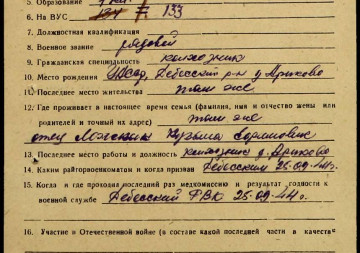 5. Образование 4 кл.
6. На ВУС 134 133
7. Должностная квалификация
8. Военное звание рядовой
9. Гражданская специальность колхозник
10. Место рождения УАССР, Дебесский р-н д. Ариково
11. Последнее место жительства там же
12. Где проживает в настоящее время семья (фамилия, имя и отчество жены или
родителей и точный их адрес) там же
отец Кузьма
13. Последнее место работы и должность колхозник д. Ариково
14. Каким райгорвоенкоматом и когда призван Дебесским 25.09.44 г.
15. Когда и где проходил последний раз медкомиссию и результат годности к
военной службе Дебесский РВК 25.09.44 г.
16. Участие в Отечественной войне (в составе какой последней части в качестве